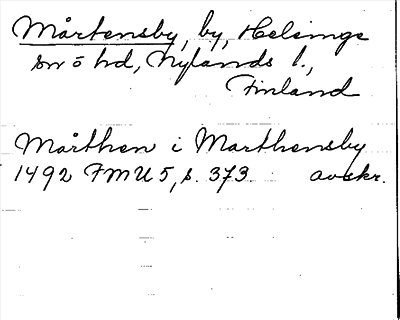 Mårtensby, by, Helsinge
sn o hd, Nylands l.,
Finland
Mårthen i Marthensby
1492 FMU 5, s. 373. avskr.